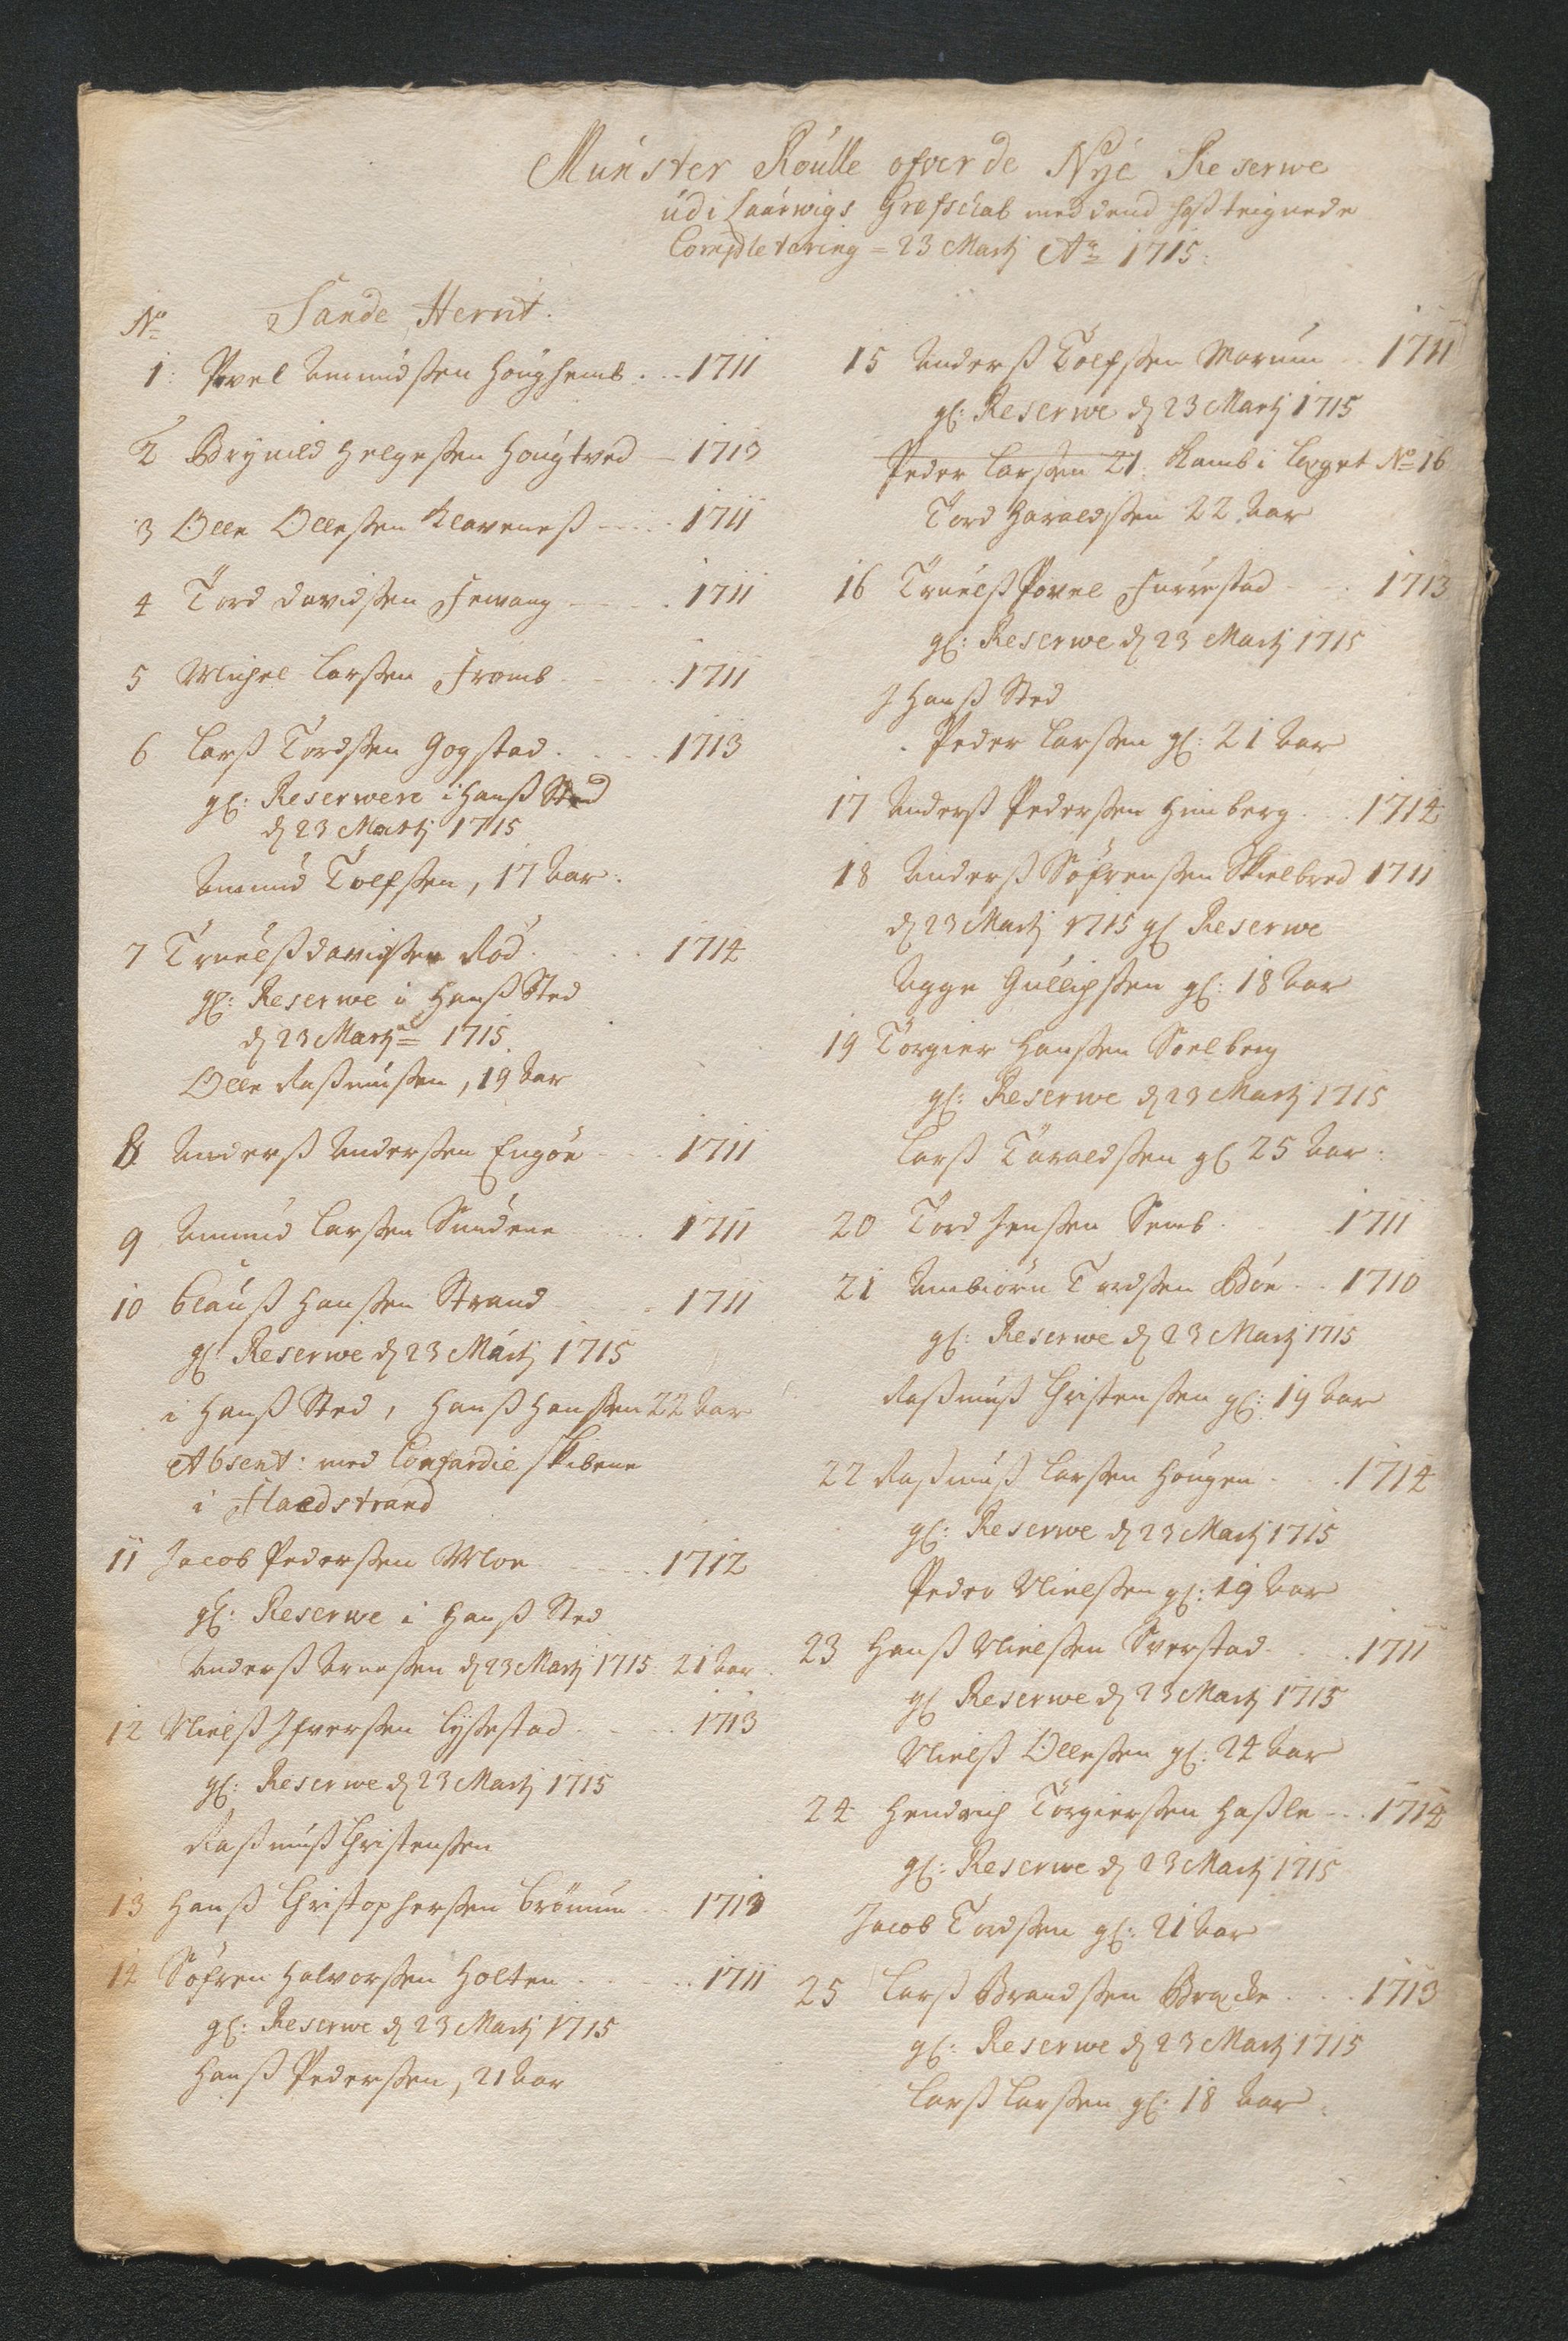 Munster Roulle ofver de Nye Reserwe
udi Laurwigs Grefschab med dend hoßteignede
Completering = 23 Martj Ao 1715:
No Sande Herrit:
1: Povel Amundßen Houghemb . . 1711
2 Brynild Helgeßen Hougtved — 1713
3 Olle Olleßen Klaveneß — 1711
4 Tord Davidßen Fewang — 1711
5 Michel Larßen Framb 1711
6 Larß Tordßen Gogstad . . 1713
gl: Reserwere i Hanß Sted
d 23 Martj 1715
Amund Tolfßen, 17 Aar:
7 Truelß Davidßen Rød . . 1714
gl: Reserwe i Hanß Sted
d 23 Martj = 1715
Olle Raßmußen, 19 Aar
8 Anderß Anderßen Engøe 1711
9 Amund Larßen Sundene 1711
10 Clauß Hanßen Strand 1711
gl: Reserwe d 23 Martj 1715
i Hanß Sted, Hanß Hanßen 22 Aar
Absent: med Confardie skibene
i Haldstrand
11 Jacob Pederßen Moe 1712
gl: Reserwe i Hanß Sted
Anderß Arneßen d 23 Martj 1715 21 Aar
12 Nielß Ifverßen Lyßestad 1713
gl: Reserwe d 23 Martj 1715
Raßmuß Christenßen
13 Hanß Christopherßen Brømum 1713
14 Søfren Halvorßen Holten 1711
gl: Reserwe d 23 Martj 1715
Hanß Pederßen, 21 Aar
15 Anderß Tolfßen Marum 1711
gl: Reserwe d 23 Martj 1715
Peder Larßen 21 Kamb i Læget No 16
Tord Haraldßen 22 Aar
16 Truelß Povel Furrestad 1713
gl: Reserwe d 23 Martj 1715
I Hanß Sted
Peder Larßen gl: 21 Aar
17 Anderß Pederßen Himberg . . 1714
18 Anderß Søfrenßen Skielbred 1711
d 23 Martj 1715 gl Reserwe
Agge Gullichßen gl: 18 Aar
19 Torgier Hanßen Soelberg
gl: Reserwe d 23 Martj 1715
Larß Taraldßen gl 25 Aar:
20 Tord Jenßen Semb . 1711
21 Ambiørn Tordßen Bøe . . 1710
gl: Reserwe d 23 Martj 1715
Raßmuß Christenßen gl: 19 Aar
22 Raßmuß Larßen Hougen . . 1714
gl: Reserwe d 23 Martj 1715
Peder Nielßen gl: 19 Aar
23 Hanß Nielßen Sverstad . . 1711
gl Reserwe d 23 Martj 1715
Nielß Olleßen gl: 24 Aar
24 Hendrich Torgierßen Haßle . . 1714
gl: Reserwe d 23 Martj 1715
Jacob Tordßen gl: 21 Aar
25 Larß Brandßen Bracke . . . 1713
gl: Reserwe d 23 Martj 1715
Larß Larßen gl: 18 Aar